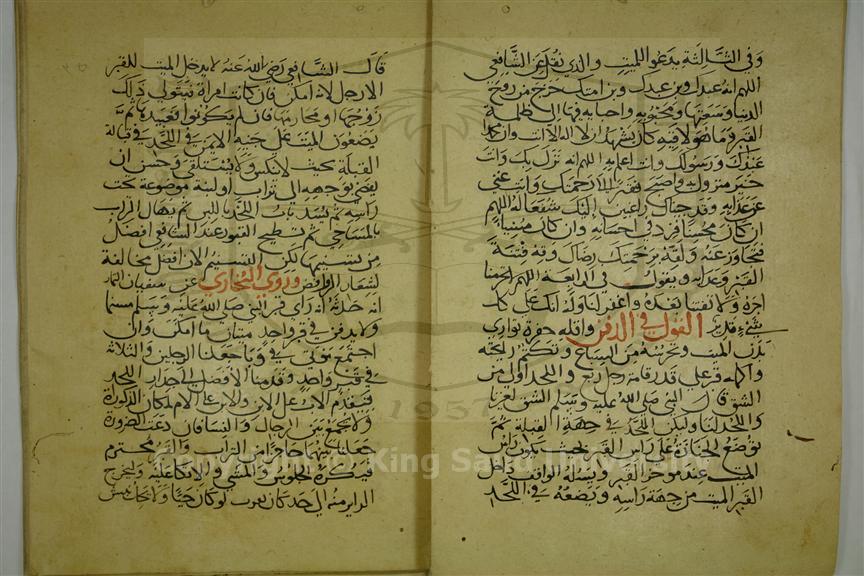 وفي الثالثة يدعو للميت والذي نقل عن الشافعي
اللهم انه عبدك وبن عبدك وبن امتك خرج من روح
الدنيا وسعتها ومحبوبه واحبابه فيها الى ظلمة
القبر وما هو لاقيه كان يشهد ان لا اله الا انت وان محمدا
عبدك ورسولك وانت اعلم به اللهم انه نزل بك وانت
خير منزول به واصبح فقيرا الى رحمتك وانت غني
عن عذابه وقد جيناك راغبين اليك شفعا له اللهم
ان كان محسنا فزد في احسانه وان كان مسيا
فتجاوز عنه ولقه برحمتك رضاك وقه فتنة
القبر وعذابه ويقول في الرابعة اللهم لاتحرمنا
اجره ولا تفتنا بعده واغفر لنا وله انك على كل
شيء قدير القول في الدفن واقله حفرة تواري
بدن الميت وتحرسه من السباع وتكتم رايحته
واكمله قبر على قدر قامة رجل ربع واللحد اولى من
الشق قال النبي صلى الله عليه وسلم الشق لغيرنا
واللحد لنا وليكن اللحد في جهة القبلة ثم
توضع الجنازة على راس القبر بحيث يكون راس
الميت عند موخر القبر ويسله الواقف داخل
القبر الميت من جهة راسه ويضعه في اللحد
قال الشافعي رضي الله عنه لا يدخل الميت القبر
الا الرجل ما امكن فان كانت امراة فيتولى ذلك
زوجها او محارمها فان لم يكونوا فعبيدها ثم
يضعون الميت على جنبه الايمن في اللحد في قبالة
القبلة بحيث لا ينكب ولا يستلقي وحسن ان
يفضي بوجهه الى تراب او لبنة موضوعة تحت
راسه ثم يسد باب اللحد باللبن ثم يهال التراب
بالمساحي ثم تسطيح القبور عند الشافعي افضل
من تسنيمها لكن التسنيم الان افضل مخالفة
لشعار الروافض وروي البخاري عن سفيان التمار
انه حدثه انه راى قبر النبي صلى الله عليه وسلم مسنما
ولا يدفن في قبر واحد ميتان ما امكن وان
اجتمع موتى في وبا جعلنا الرجلين والثلاثة
في قبر واحد وقدمنا الافضل الى جدار اللحد
فيقدم الاب على الابن والابن على الام لمكان الذكورة
ولا يجمع بين الرجال والنسا فان دعت الضرورة
جعلنا بينهما حاجزا من التراب والقبر محترم
فيكره الجلوس والمشي والاتكا عليه وليخرج
الزاير منه الى حد كان يقرب لو كان حيا ولا